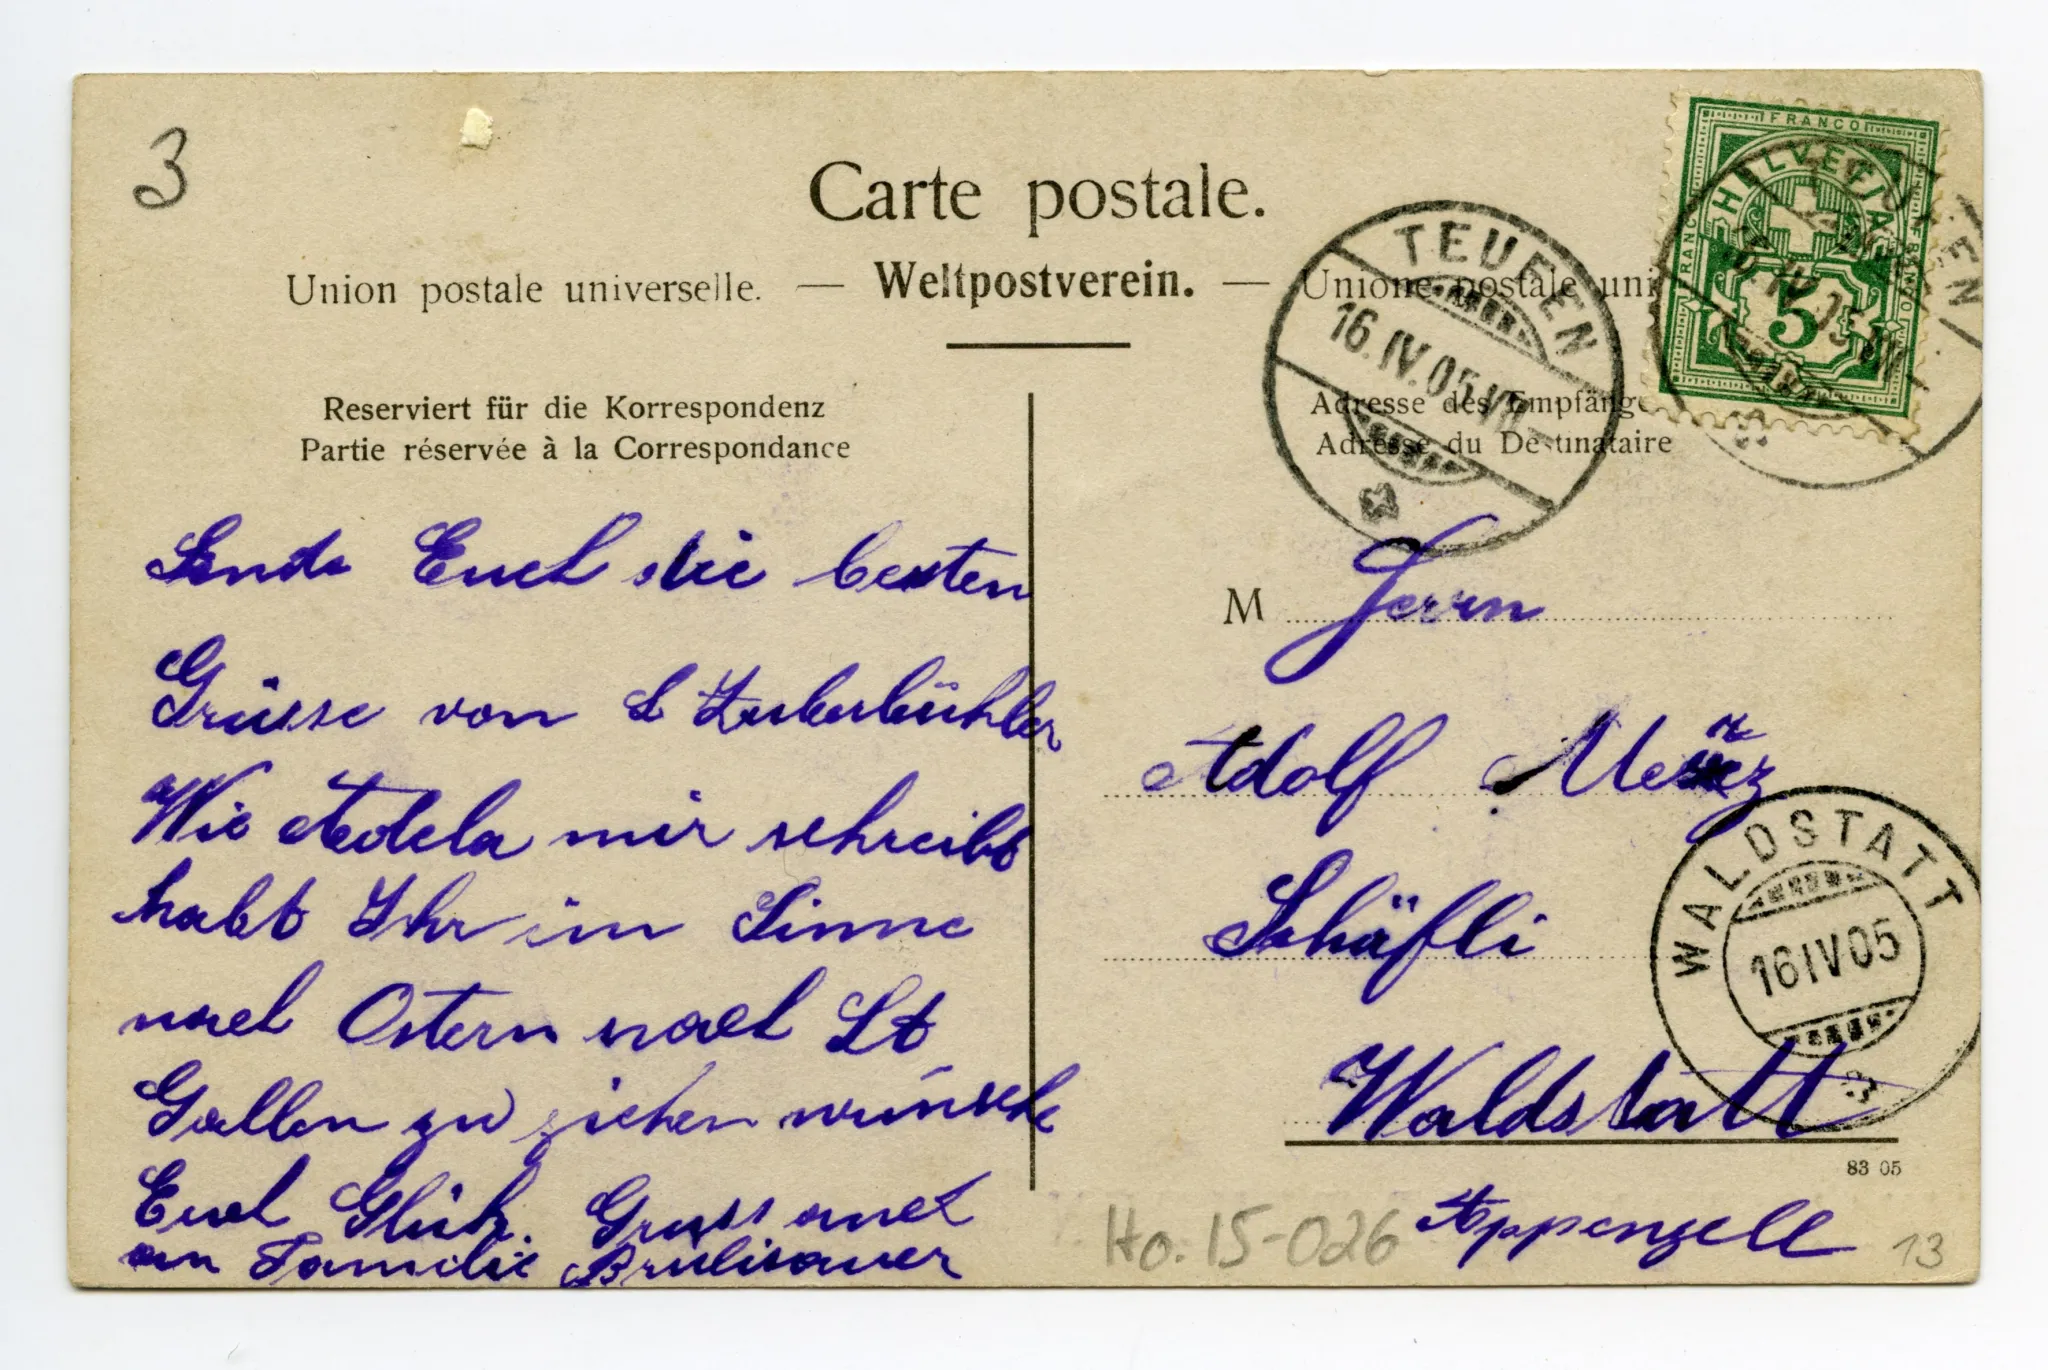 3
Carte postale.
Union postale universelle. — Weltpostverein. — Unione postale uni
Reserviert für die Korrespondenz
Partie réservée à la Correspondance
Adresse des Empfänge
Adresse du Destinataire
FRANCO
HELVETIA
5
TEUFEN
16.IV.05.VII
TEUFEN
16.IV.05.VII
Sende Euch die besten
Grüsse von L Zuberbühler
Wie Adela mir schreibt
habt Ihr im Sinne
nach Ostern nach St
Gallen zu ziehen wünsche
Euch Glück. Gruss auch
an Familie Brülisauer
M Herrn
Adolf
Schäfli
Waldstatt
Appenzell
WALDSTATT
16 IV 05
83 05
Ho. 15-026
13